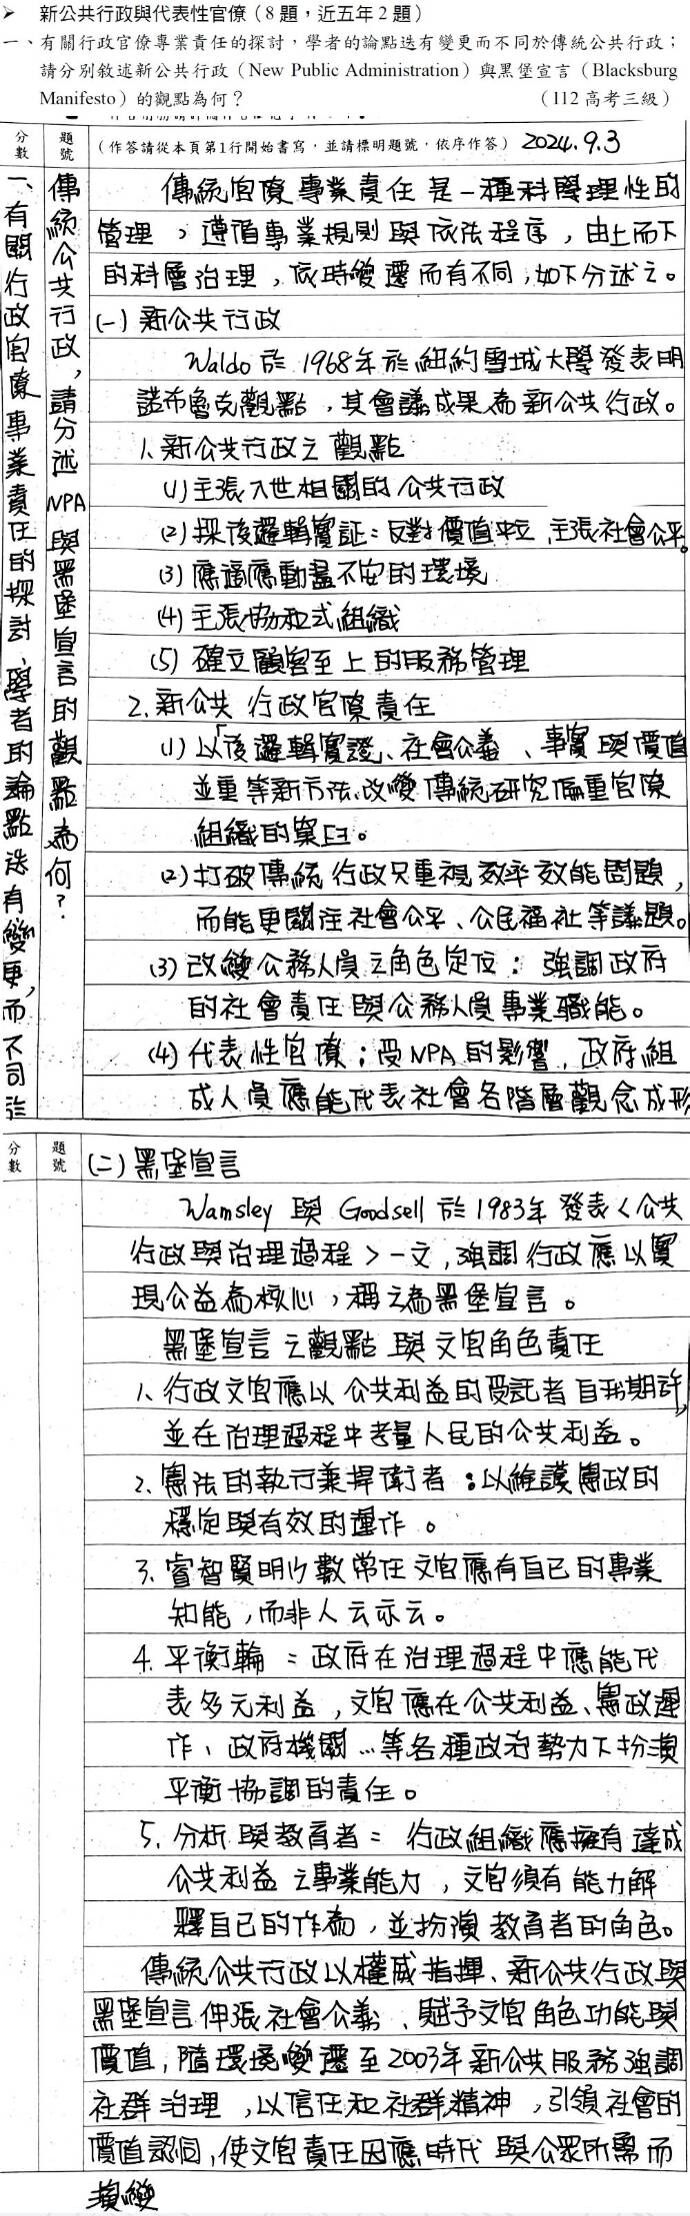 ➤ 新公共行政與代表性官僚（8 題，近五年 2 題）
一、有關行政官僚專業責任的探討，學者的論點迭有變更而不同於傳統公共行政；
請分別敘述新公共行政（New Public Administration）與黑堡宣言（Blacksburg
Manifesto）的觀點為何？（112 高考三級）
分數
題號
（作答請從本頁第1行開始書寫，並請標明題號，依序作答） 2024.9.3
一、有關行政官僚專業責任的探討、學者的論點迭有變更，而不同於
傳統公共行政，請分述NPA與黑堡宣言的觀點為何？
傳統官僚專業責任是一種科學理性的
管理，遵循專業規則與依法程序，由上而下
的科層治理，依時變遷而有不同，如下分述之。
(一) 新公共行政
Waldo 於 1968年於紐約雪城大學發表明
諾布魯克觀點，其會議成果為新公共行政。
1、新公共行政之觀點
(1)主張入世相關的公共行政
(2)採後邏輯實証：反對價值中立，主張社會公平。
(3) 應適應動盪不安的環境
(4)主張協和式組織
(5) 確立顧客至上的服務管理
2、新公共行政官僚責任
(1)以「後邏輯實證、社會公義、事實與價值
並重等新方法，改變傳統研究偏重官僚
組織的窠臼。
(2)打破傳統行政只重視效率效能問題，
而能更關注社會公平、公民福祉等議題。
(3) 改變公務人員之角色定位：強調政府
的社會責任與公務人員專業職能。
(4) 代表性官僚；受NPA的影響，政府組
成人員應能代表社會各階層觀念成形
分數
題號
(二) 黑堡宣言
Wamsley 與 Goodsell 於1983年發表＜公共
行政與治理過程＞一文，強調行政應以實
現公益為核心，稱之為黑堡宣言。
黑堡宣言之觀點與文官角色責任
1、行政文官應以公共利益的受託者自我期許，
並在治理過程中考量人民的公共利益。
2、憲法的執行兼捍衛者：以維護憲政的
穩定與有效的運作。
3、睿智賢明少數常任文官應有自己的專業
知能，而非人云亦云。
4、平衡輪：政府在治理過程中應能代
表多元利益，文官應在公共利益、憲政運
作、政府機關…等各種政治勢力下扮演
平衡協調的責任。
5、分析與教育者：行政組織應擁有達成
公共利益之專業能力，文官須有能力解
釋自己的作為，並扮演教育者的角色。
傳統公共行政以權威指揮、新公共行政與
黑堡宣言伸張社會公義、賦予文官角色功能與
價值，隨環境變遷至2003年新公共服務強調
社群治理，以信任和社群精神，引領社會的
價值認同，使文官責任因應時代與公眾所需而
演變